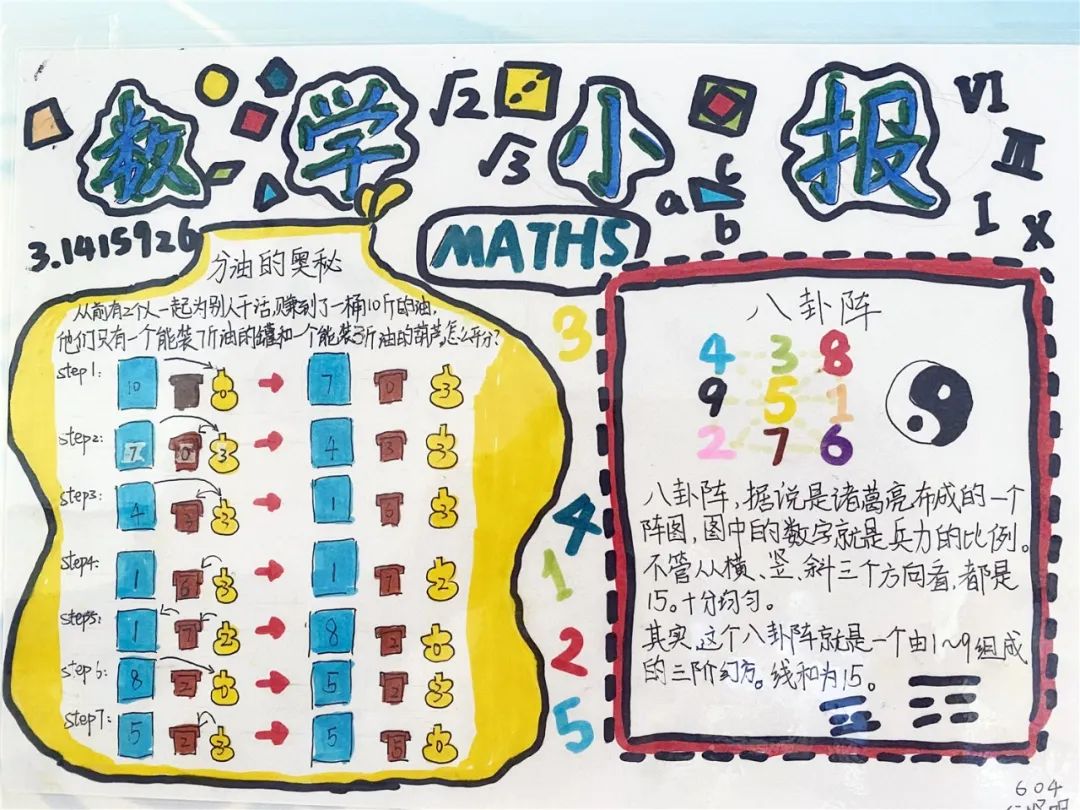 数学小报
√2
√3
a
b
c
VI
III
I
X
3.1415926
MATHS
分油的奥秘
从前有2个人一起为别人干活,赚到了一桶10斤的油,
他们只有一个能装7斤油的罐和一个能装3斤油的葫芦,怎么平分?
step1: 10 0 7 0 3
step2: 7 0 3 4 3 3
step3: 4 3 3 1 6 3
step4: 1 6 3 1 7 2
step5: 1 7 2 8 2 0
step6: 8 2 0 5 2 3
step7: 5 2 3 5 5 0
3
4
1
2
5
八卦阵
4 3 8
9 5 1
2 7 6
八卦阵,据说是诸葛亮布成的一个
阵图,图中的数字就是兵力的比例。
不管从横、竖、斜三个方向看,都是
15。十分均匀。
其实,这个八卦阵就是一个由1~9组成
的三阶幻方。线和为15。
604